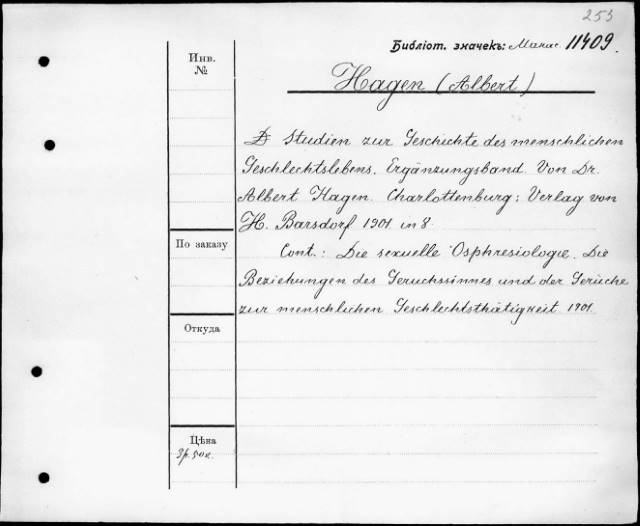 253
Библіот. значекъ: Манас. 11409.
Инв.
№
Hagen (Albert)
Studien zur Geschichte des menschlichen
Geschlechtslebens. Ergänzungsband. Von Dr.
Albert Hagen. Charlottenburg: Verlag von
H. Barsdorf 1901. in 8.
По заказу
Cont.: Die sexuelle Osphresiologie. Die
Beziehungen des Geruchssinnes und der Gerüche
zur menschlichen Geschlechtsthätigkeit. 1901.
Откуда
Цѣна
3р. 50к.